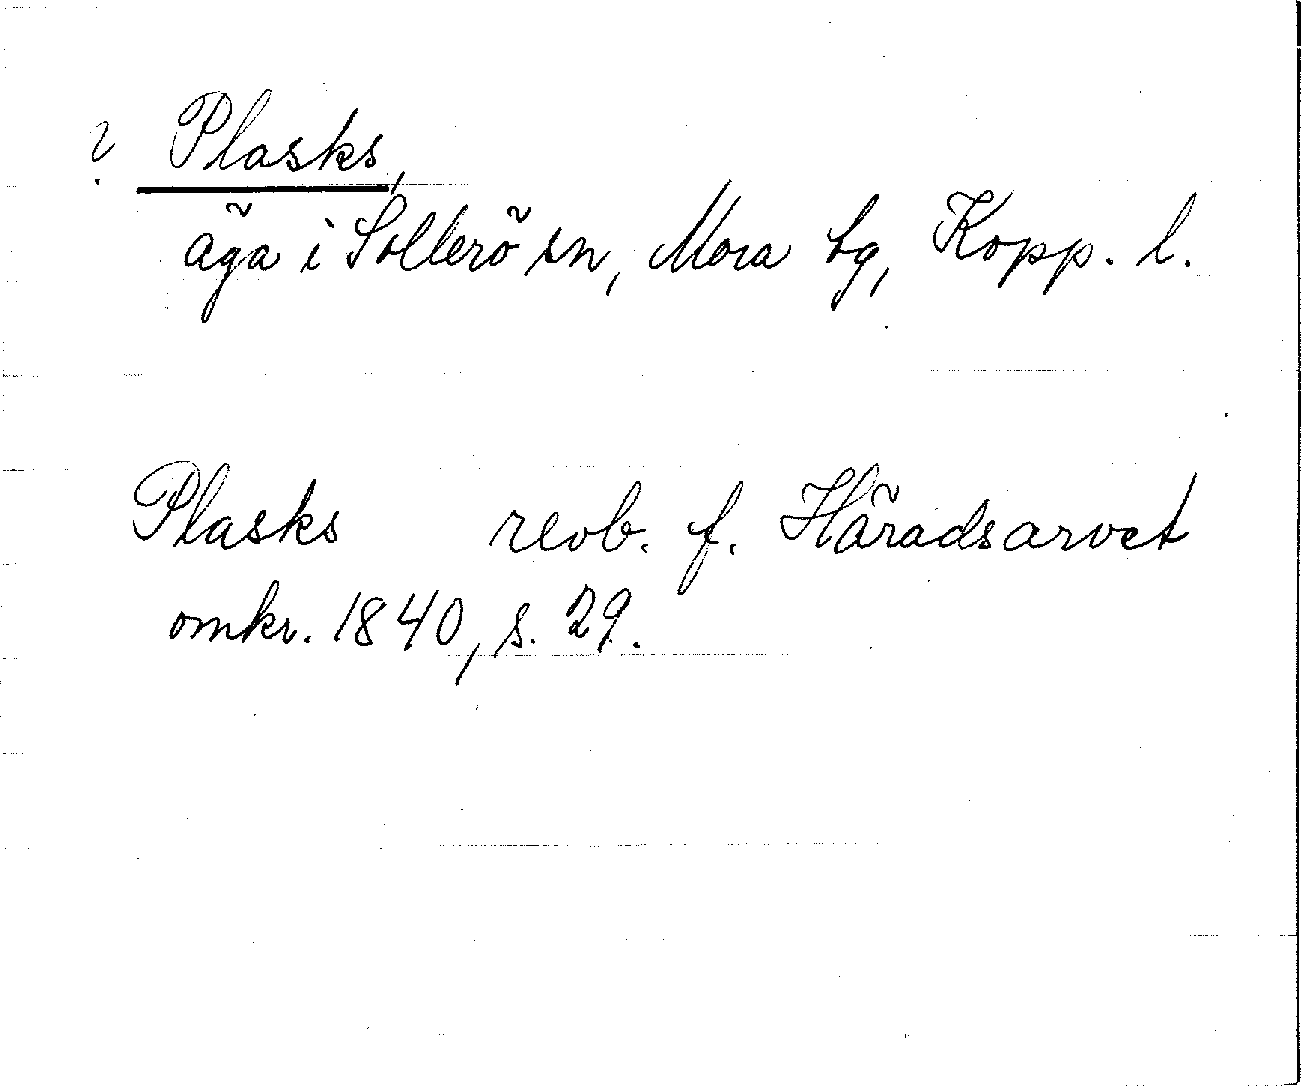 ? Plasks,
äga i Sollerö sn, Mora tg, Kopp. l.
Plasks revb. f. Häradsarvet
omkr. 1840, s. 29.